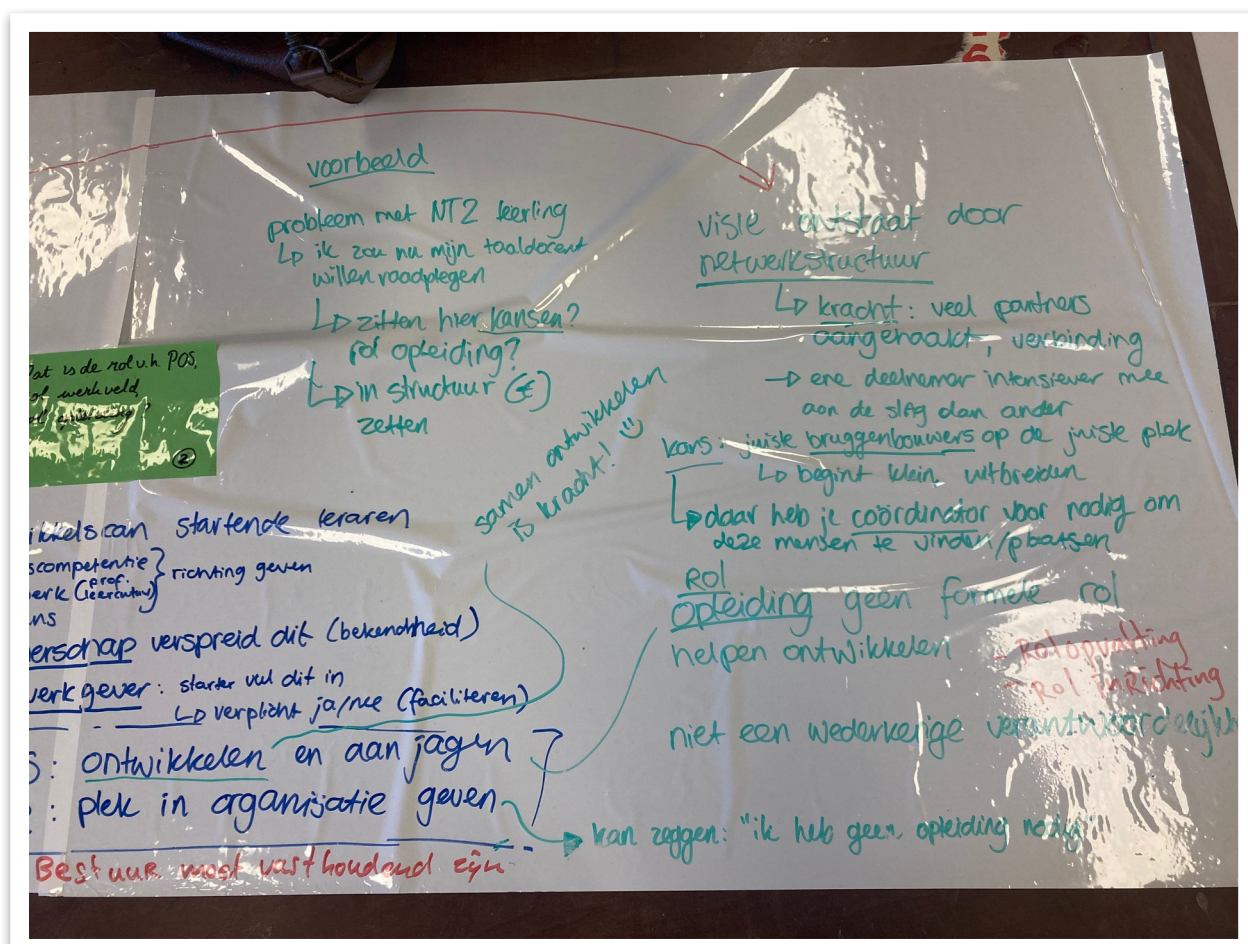 voorbeeld
probleem met NT2 leerling
↳ ik zou nu mijn taaldocent
willen raadplegen
↳ zitten hier kansen?
rol opleiding?
↳ in structuur (€)
zetten
samen ontwikkelen
is kracht! ☺
visie ontstaat door
netwerkstructuur
↳ kracht: veel partners
aangehaakt, verbinding
→ ene deelnemer intensiever mee
aan de slag dan ander
kans: juiste bruggenbouwers op de juiste plek
↳ begint klein, uitbreiden
↳ daar heb je coördinator voor nodig om
deze mensen te vinden/plaatsen
Rol
Opleiding geen formele rol
helpen ontwikkelen
- Rolopvatting
- Rol inRichting
niet een wederkerige verantwoordelijkh
kan zeggen: "ik heb geen opleiding nodig"
at is de rol v.h. POS,
werkveld,
2
ikkelscan startende leraren
scompetentie } richting geven
erk (prof. leercultuur)
ns
erschap verspreid dit (bekendheid)
werkgever: starter vul dit in
↳ verplicht ja/nee (faciliteren)
S: ontwikkelen en aanjagen
: plek in organisatie geven
Bestuur moet vasthoudend zijn